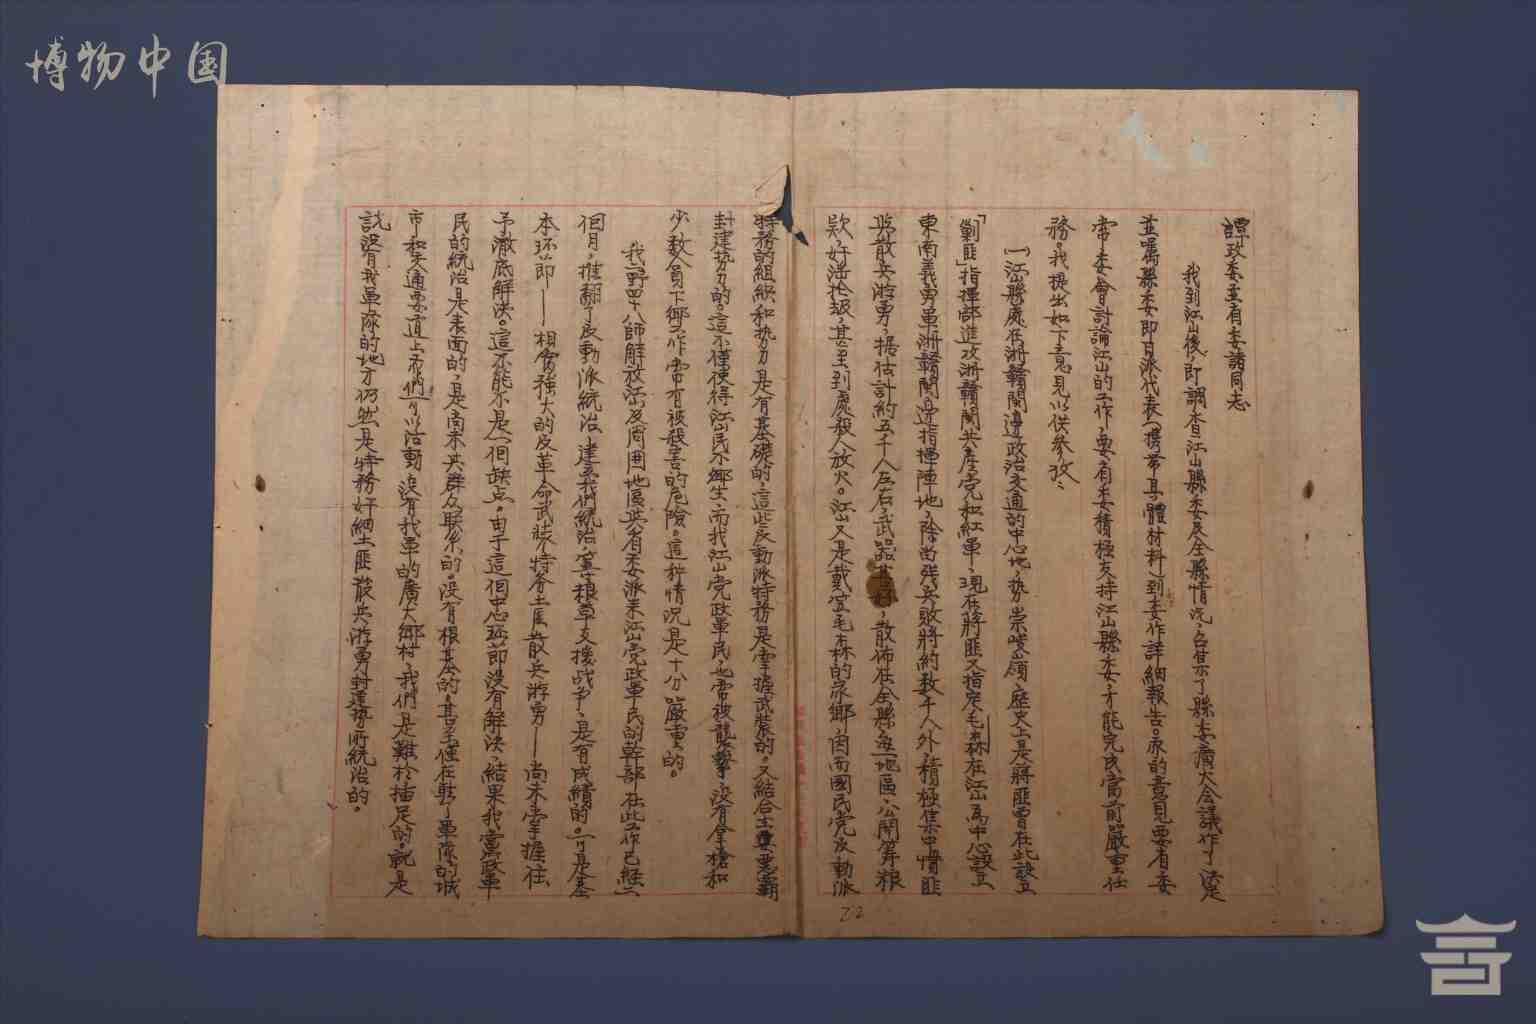 博物中国
譚政委并省委諸同志
我到江山後，即調查江山縣委及全縣情況，召集了縣委擴大会議，作了決定
並囑縣委即日派代表（携帶具體材料）到省委作詳細報告。我的意見要省委
常委會討論江山的工作，要省委積極支持江山縣委，才能完成當前嚴重任
務。我提出如下意見以供參攷：
（一）江山縣處在浙贛閩邊政治交通的中心地，势崇峻嶺，歷史上是蔣匪曾在此設立
「剿匪」指揮部進攻浙贛閩共產党和紅軍，現在蔣匪又指定毛森在江山為中心設立
東南義勇軍浙贛閩邊指揮陣地，除尚殘兵敗將約数千人外，積極集中慣匪
股散兵游勇，據估計約五千人左右，武器甚好，散佈在全縣每一地區，公開筹粮
款，奸淫抢掠，甚至到處殺人放火。江山又是戴笠毛森的家鄉，因而國民党反動派
特務的組織和势力是有基礎的，這些反動派特務是掌握武裝的。又結合土豪惡霸
封建势力的。這不僅使得江山民不鄉生，而我江山党政軍民，也常被襲擊，没有拿槍和
少数人員下鄉工作常有被殺害的危險。這种情况是十分嚴重的。
我二野四十八師解放江山及周囲地區与省委派来江山党政軍民的幹部在此工作已経一
個月，推翻了反動派統治，建立我們統治，寔行粮草支援战争，是有成績的。可是基
本环節——相當強大的反革命武裝特务土匪散兵游勇——尚未掌握住
予澈底解决。這不能不是一個缺点。由于這個中心环節没有解决，結果我党政軍
民的統治是表面的，是尚未与群众联系的。没有根基的。甚至僅在駐了軍隊的城
市和交通要道上我們可以活動，没有我軍的廣大鄉村，我們是難於插足的。就是
說没有我軍隊的地方仍然是特務奸細土匪散兵游勇封建势所統治的。
22